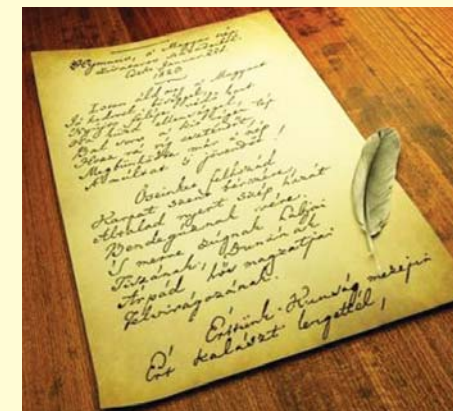 Hymnus, a' Magyar nép
zivataros századaiból.
Cseke, Január 22d
1823.
Isten áldd meg a' Magyart
Jó kedvvel, bőséggel,
Nyújts feléje védő kart
Ha küzd ellenséggel;
Bal sors a' kit régen tép
Hozz rá víg esztendőt,
Megbűnhődte már e' nép
A' múltat 's jövendőt!
Őseinket felhozád
Kárpát szent bérczére,
Általad nyert szép hazát
Bendegúznak vére.
'S merre zúgnak habjai
Tiszának, Dunának
Árpád hős magzatjai
Felvirágozának.
Értünk Kunság mezein
Ért kalászt lengettél,